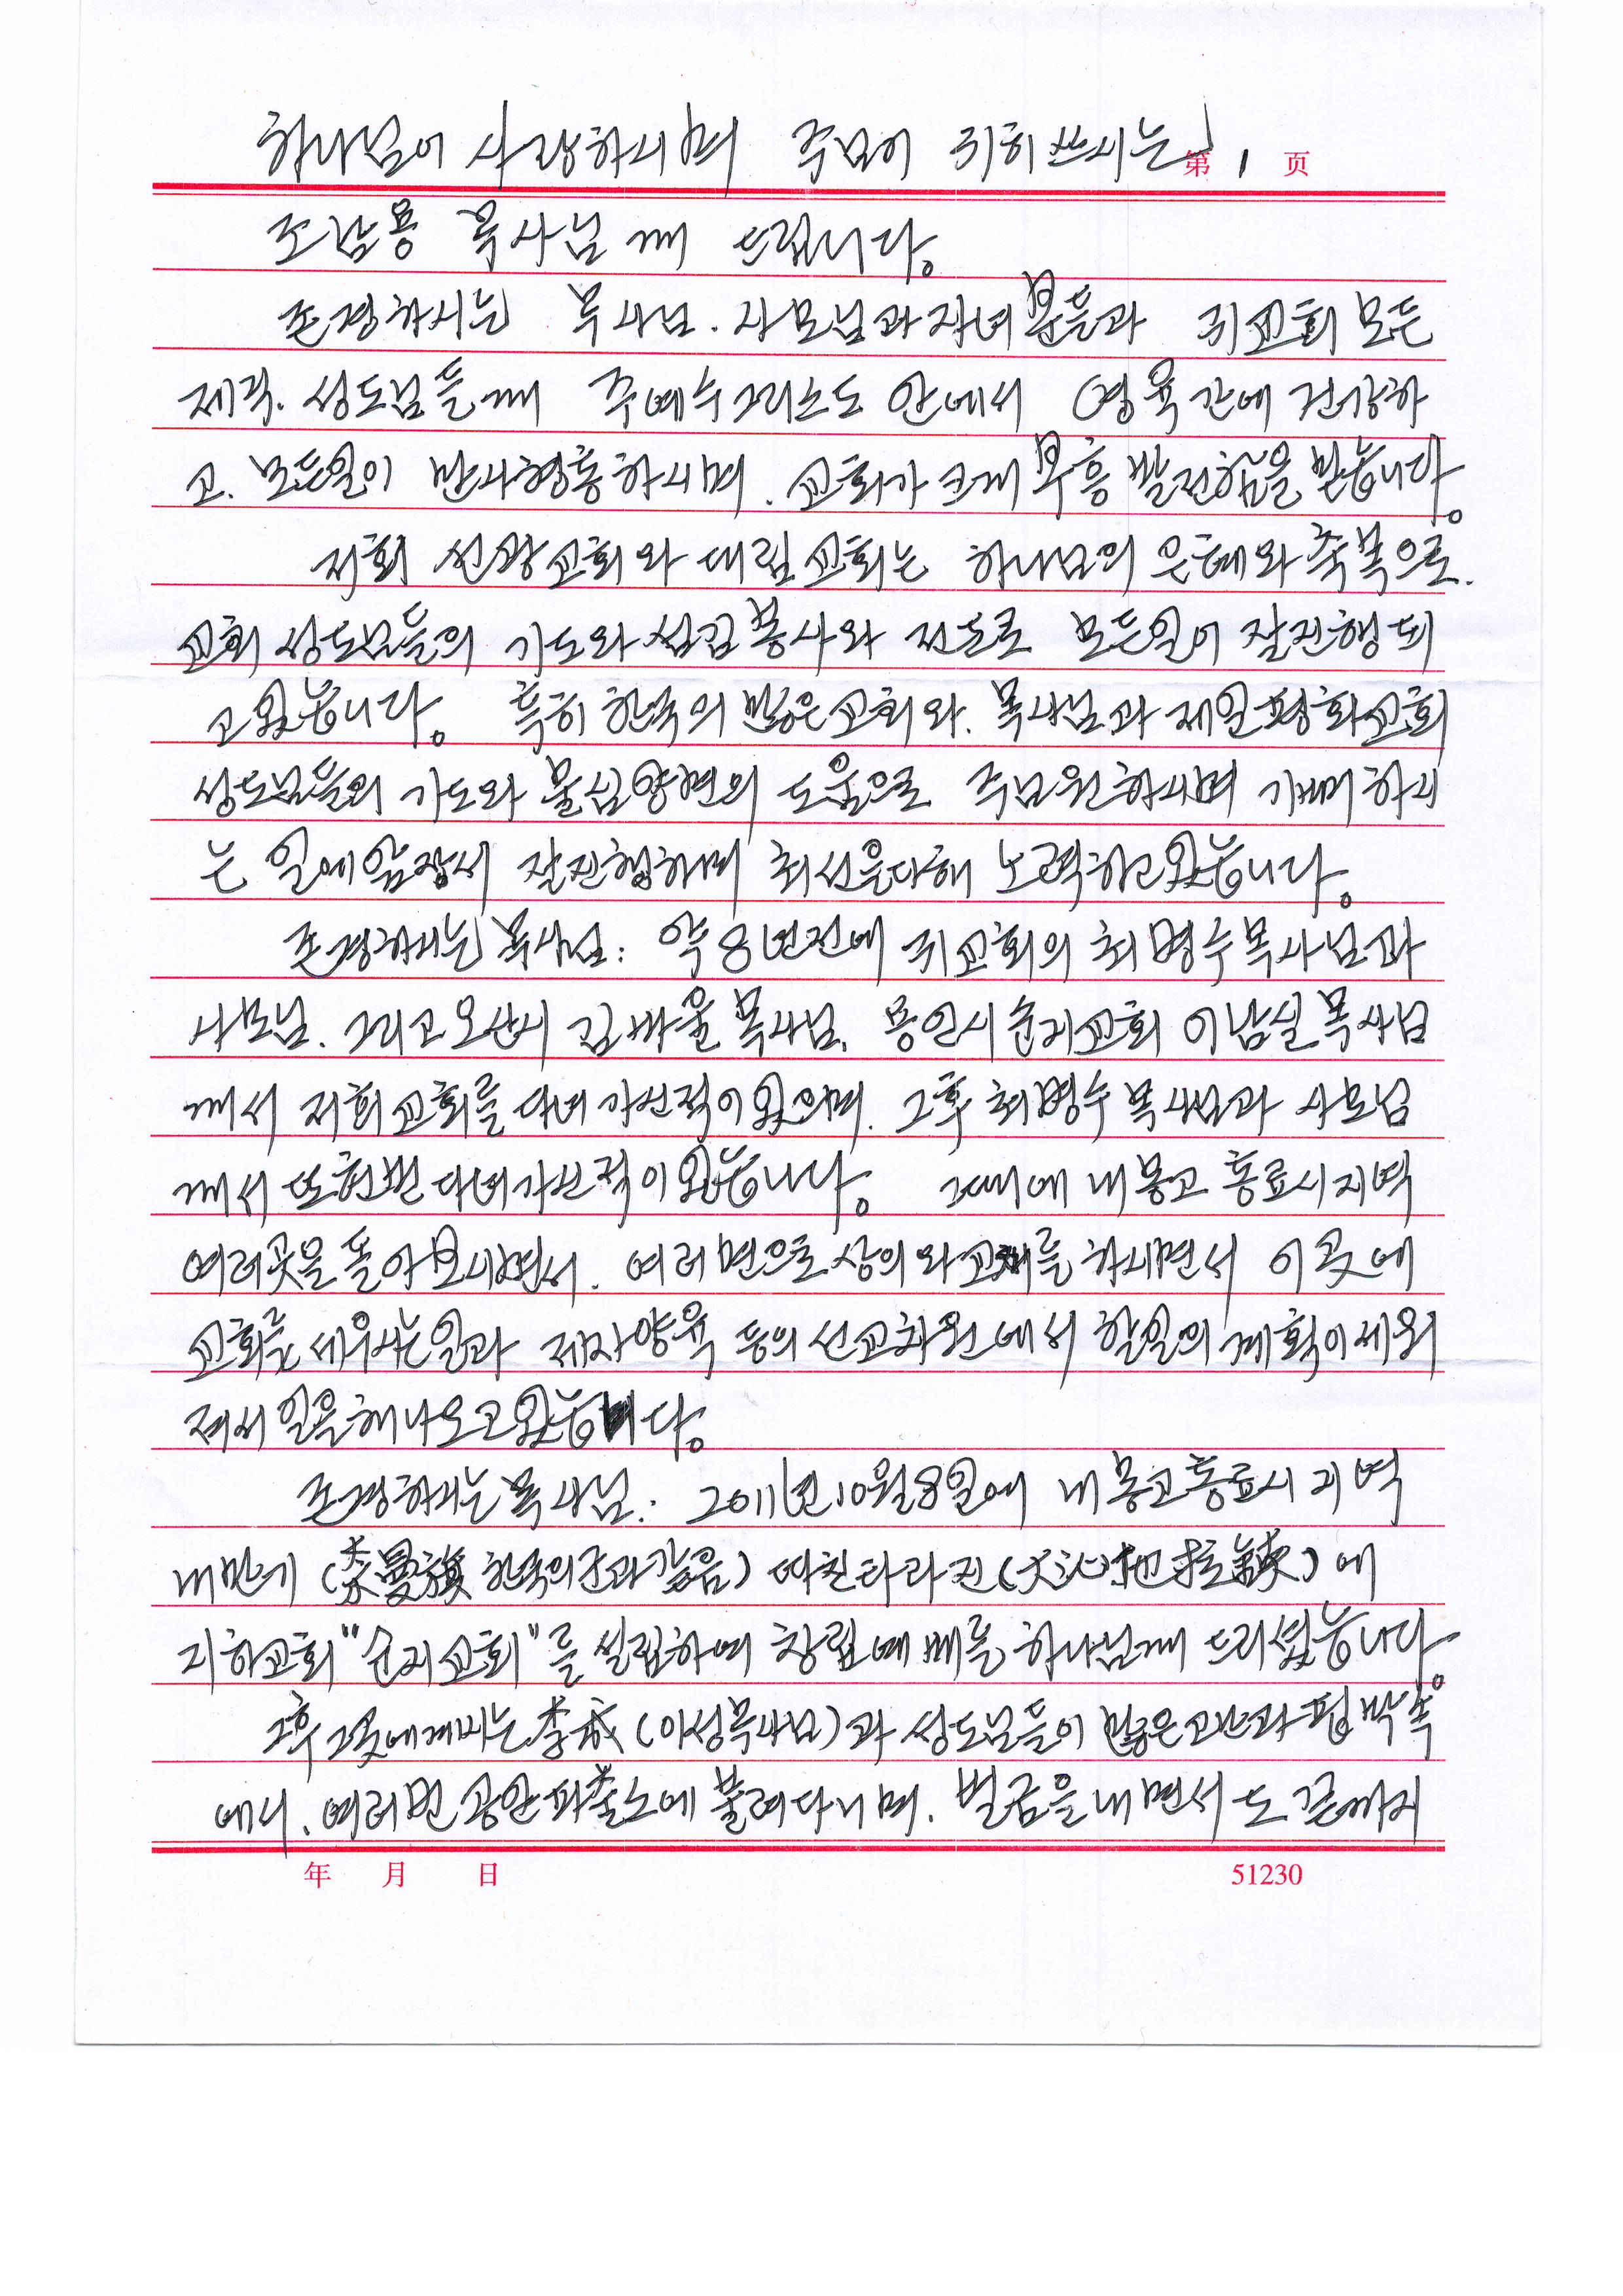 하나님이 사랑하시며 주님이 귀히 쓰시는
第 1 页
조남용 목사님께 드립니다。
존경하시는 목사님. 사모님과 자녀분들과 귀교회 모든
제직. 성도님들께 주예수그리스도 안에서 영육간에 건강하
고. 모든일이 만사형통하시며. 교회가 크게 부흥발전함을 믿습니다。
저희 선광교회와 대림교회는 하나님의 은혜와 축복으로.
교회 성도님들의 기도와 섬김봉사와 전도로 모든일이 잘진행되
고있습니다。 특히 한국의 많은교회와. 목사님과 제일평화교회
성도님들의 기도와 물심양면의 도움으로 주님원하시며 기뻐하시
는 일에앞장서 잘진행하며 최선을다해 노력하고있습니다。
존경하시는 목사님: 약 8년전에 귀교회의 최명수목사님과
사모님. 그리고 오산시 김바울목사님. 용인시 순지교회 이남실목사님
께서 저희교회를 다녀가신적이있으며. 그후 최명수목사님과 사모님
께서 또한번 다녀가신적이있습니다。 그때에 내몽고 통료시지역
여러곳을 돌아보시면서. 여러면으로 상의와교제를 하시면서 이곳에
교회를 세우시는일과 제자양육 등의 선교차원에서 할일의 계획이세워
져서 일을해나오고있습니다。
존경하시는목사님. 2011년10월8일에 내몽고통료시지역
내만기 (奈曼旗 한국의군과같음) 따친타라진(大沁他拉鎮)에
지하교회"순지교회"를 설립하여 창립예배를 하나님께 드리셨습니다。
그후 그곳에계시는 李成 (이성목사님)과 성도님들이 많은고난과 핍박속
에서. 여러번 공안파출소에 불려다니며. 벌금을내면서도 끝까지
年 月 日
51230